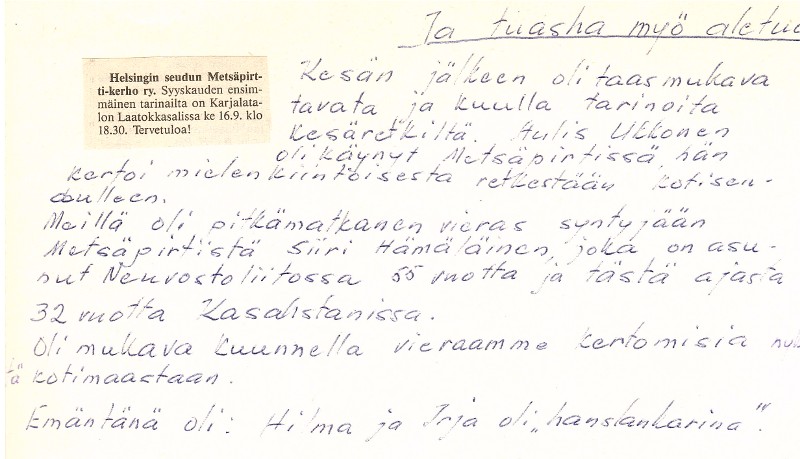 Ja tuasha myö aletu
Helsingin seudun Metsäpirt-
ti-kerho ry. Syyskauden ensim-
mäinen tarinailta on Karjalata-
lon Laatokkasalissa ke 16.9. klo
18.30. Tervetuloa!
Kesän jälkeen oli taas mukava
tavata ja kuulla tarinoita
kesäretkiltä. Aulis Ukkonen
oli käynyt Metsäpirtissä, hän
kertoi mielenkiintoisesta retkestään kotiseu-
dulleen.
Meillä oli pitkämatkanen vieras syntyjään
Metsäpirtistä Siiri Hämäläinen, joka on asu-
nut Neuvostoliitossa 55 vuotta ja tästä ajasta
32 vuotta Kasahstanissa.
Oli mukava kuunnella vieraamme kertomisia
kotimaastaan.
Emäntänä oli: Hilma ja Irja oli „hanslankarina".